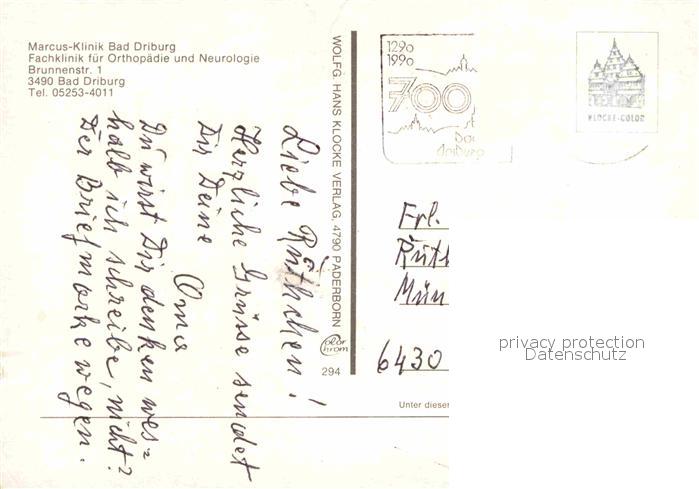 Marcus-Klinik Bad Driburg
Fachklinik für Orthopädie und Neurologie
Brunnenstr. 1
3490 Bad Driburg
Tel. 05253-4011
Liebe Rüthchen!
Herzliche Grüsse sendet
Dir Deine
Oma
Du wirst Dir denken wes=
halb ich schreibe, nicht?
Der Briefmarke wegen.
WOLFG. HANS KLOCKE VERLAG, 4790 PADERBORN
Color
chrom
294
1290
1990
700
Bad
Driburg
KLOCKE-COLOR
Frl.
Ruth
Mün
6430
privacy protection
Datenschutz
Unter dieser